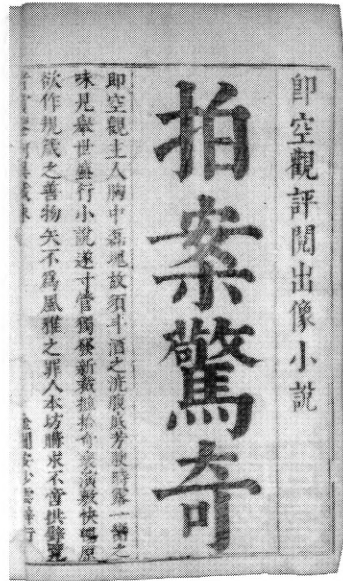 即空觀評閱出像小說
拍案驚奇
即空觀主人胸中磊塊故須斗酒之澆腹底芳腴時露一臠之
味見舉世盛行小說遂寸管獨發新裁摭拾奇袤演敷快暢原
欲作規箴之善物矢不爲風雅之罪人本坊購求不啻拱璧覽
者賞鑒何異藏珠 金閶安少雲梓行